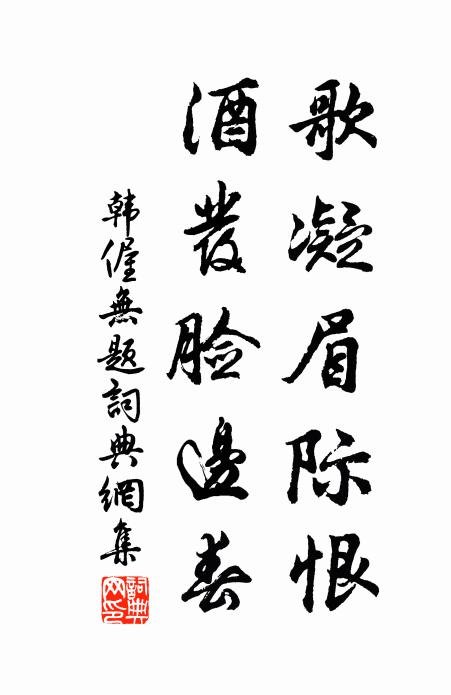 歌凝眉际恨
酒發脸邊春
韩偓無题詞典網集
詞典网印